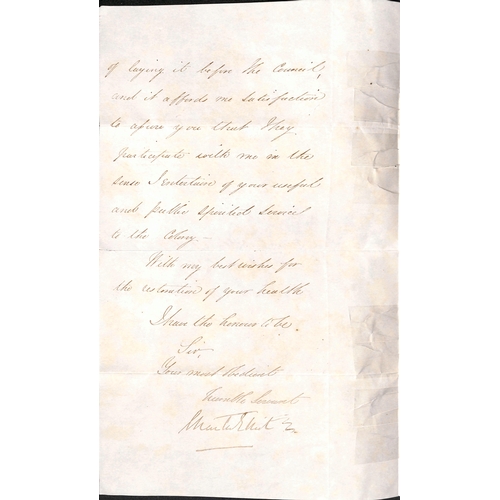 of laying it before the Council,
and it affords me satisfaction
to assure you that They
participate with me in the
sense I entertain of your useful
and public spirited service
to the Colony —
With my best wishes for
the restoration of your health
I have the honour to be.
Sir,
Your most Obedient
humble Servant
Charles Elliot